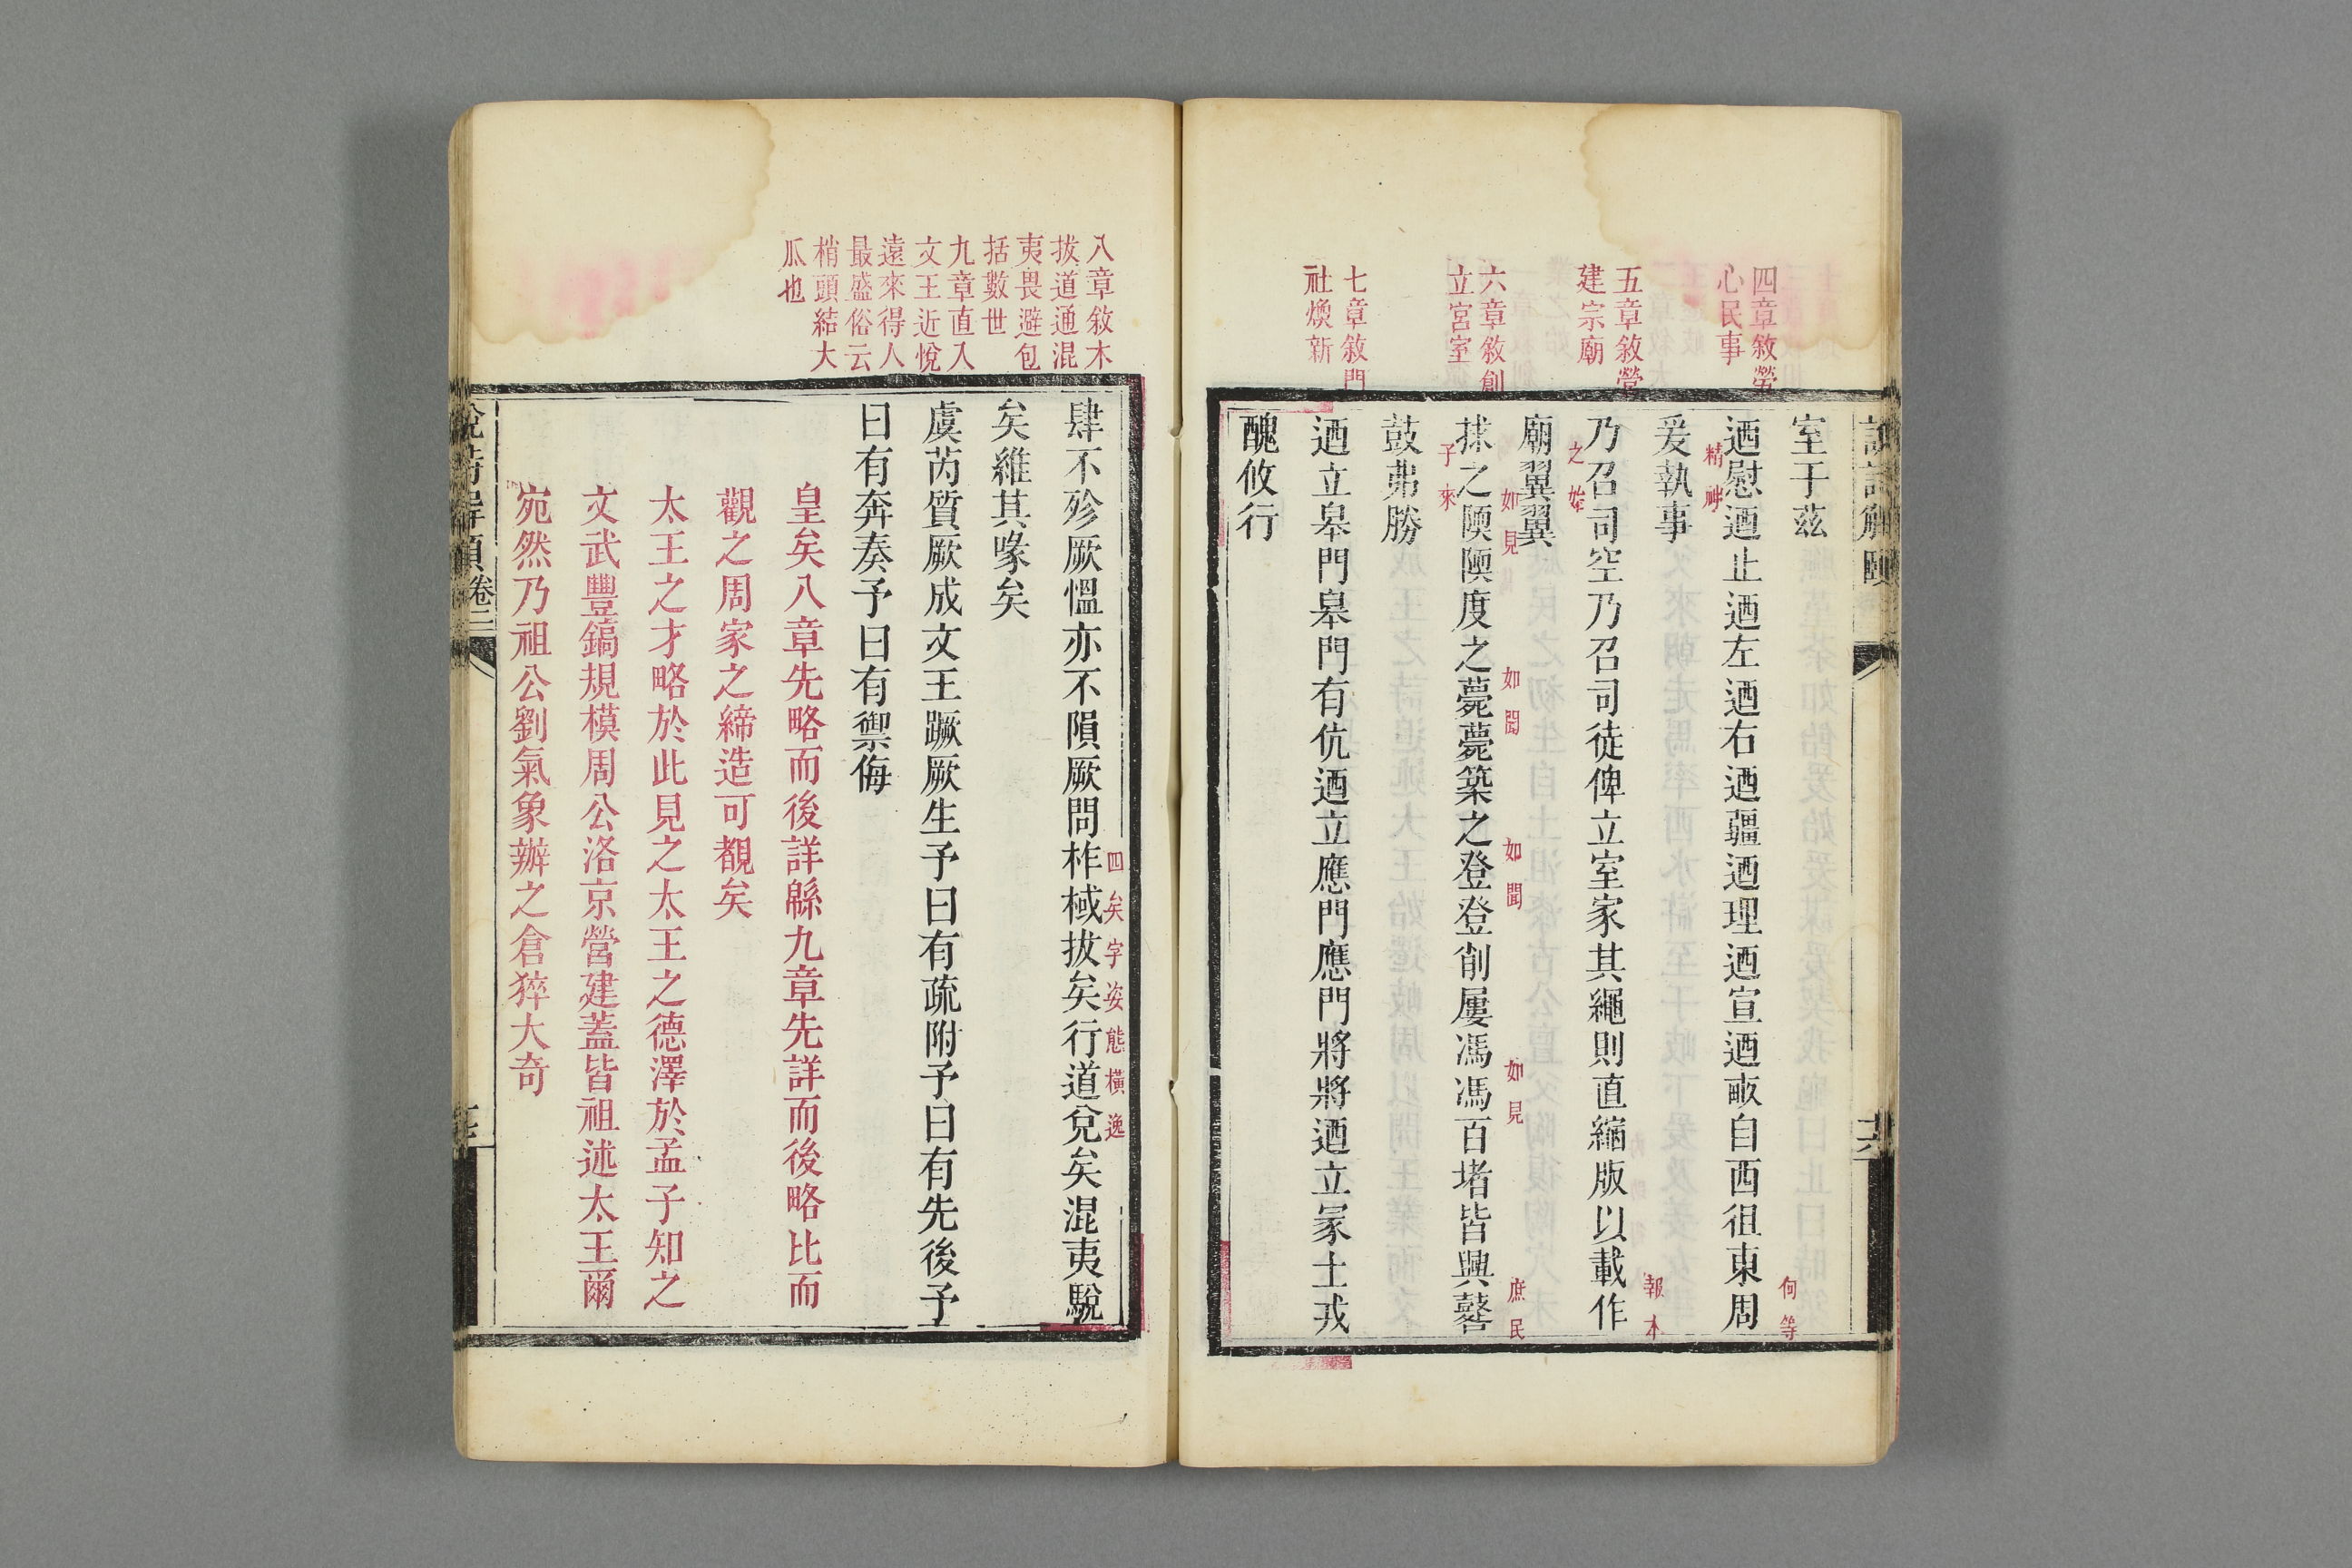 四章敘勞
心民事
五章敘營
建宗廟
六章敘創
立宮室
七章敘門
社煥新
說詩解頤
六
室于茲
何等
迺慰迺止迺左迺右迺疆迺理迺宣迺畝自西徂東周
精神
爰執事
報本
乃召司空乃召司徒俾立室家其繩則直縮版以載作
之始
廟翼翼
如見
如聞
如聞
如見
庶民
捄之陾陾度之薨薨築之登登削屢馮馮百堵皆興鼛
子來
鼓弗勝
迺立皋門皋門有伉迺立應門應門將將迺立冢土戎
醜攸行
八章敘木
拔道通混
夷畏避包
括數世
九章直入
文王近悅
遠來得人
最盛俗云
梢頭結大
瓜也
四矣字姿態橫逸
肆不殄厥慍亦不隕厥問柞棫拔矣行道兌矣混夷駾
矣維其喙矣
虞芮質厥成文王蹶厥生予曰有疏附予曰有先後予
曰有奔奏予曰有禦侮
皇矣八章先略而後詳緜九章先詳而後略比而
觀之周家之締造可覩矣
太王之才略於此見之太王之德澤於孟子知之
文武豐鎬規模周公洛京營建蓋皆祖述太王爾
宛然乃祖公劉氣象辦之倉猝大奇
說詩解頤卷二